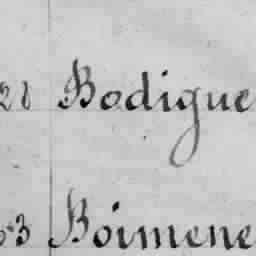 28 Bodigue
3 Boimene